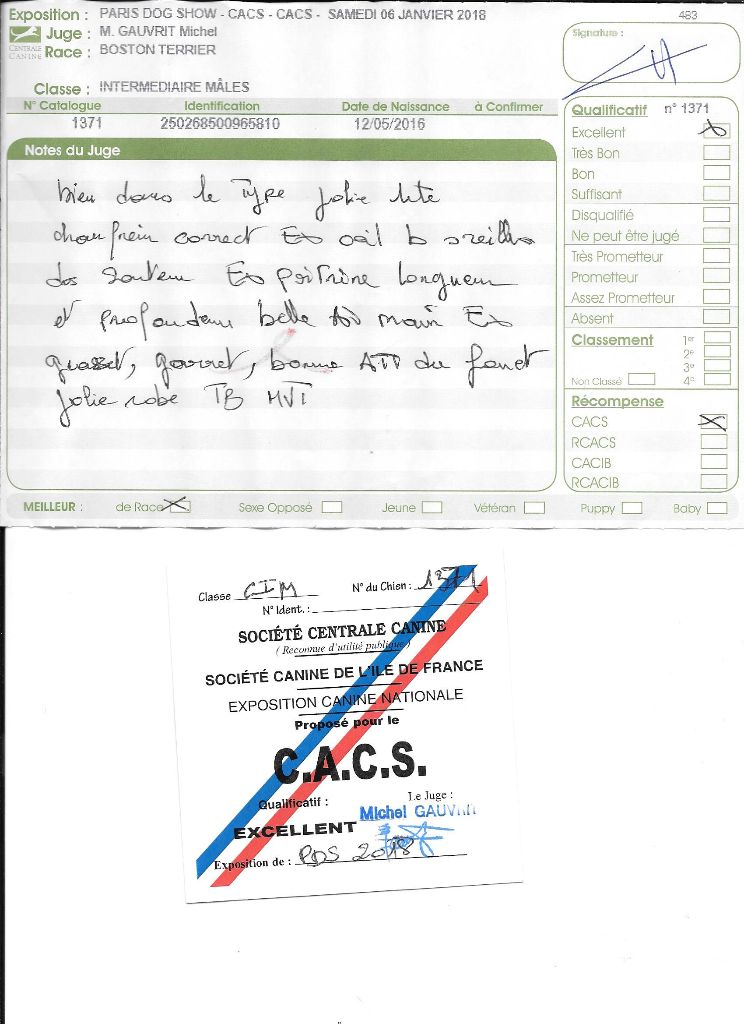 Exposition : PARIS DOG SHOW - CACS - CACS - SAMEDI 06 JANVIER 2018
483
Juge : M. GAUVRIT Michel
CENTRALE CANINE
Race : BOSTON TERRIER
Signature :
Classe : INTERMEDIAIRE MÂLES
N° Catalogue Identification Date de Naissance à Confirmer
1371 250268500965810 12/05/2016
Notes du Juge
bien dans le Type jolie tête
chanfrein correct Ex oeil b oreilles
dos soutenu Ex poitrine longueur
et profondeur belle main Ex
grasset, jarret, bonne ATT du fouet
jolie robe TB MVT
Qualificatif n° 1371
Excellent
Très Bon
Bon
Suffisant
Disqualifié
Ne peut être jugé
Très Prometteur
Prometteur
Assez Prometteur
Absent
Classement 1er
2e
3e
Non Classé 4e
Récompense
CACS
RCACS
CACIB
RCACIB
MEILLEUR : de Race Sexe Opposé Jeune Vétéran Puppy Baby
Classe CIM N° du Chien : 1371
N° Ident. :
SOCIÉTÉ CENTRALE CANINE
( Reconnue d'utilité publique )
SOCIÉTÉ CANINE DE L'ILE DE FRANCE
EXPOSITION CANINE NATIONALE
Proposé pour le
C.A.C.S.
Qualificatif : Le Juge :
Michel GAUVRIT
EXCELLENT
Exposition de : PDS 2018